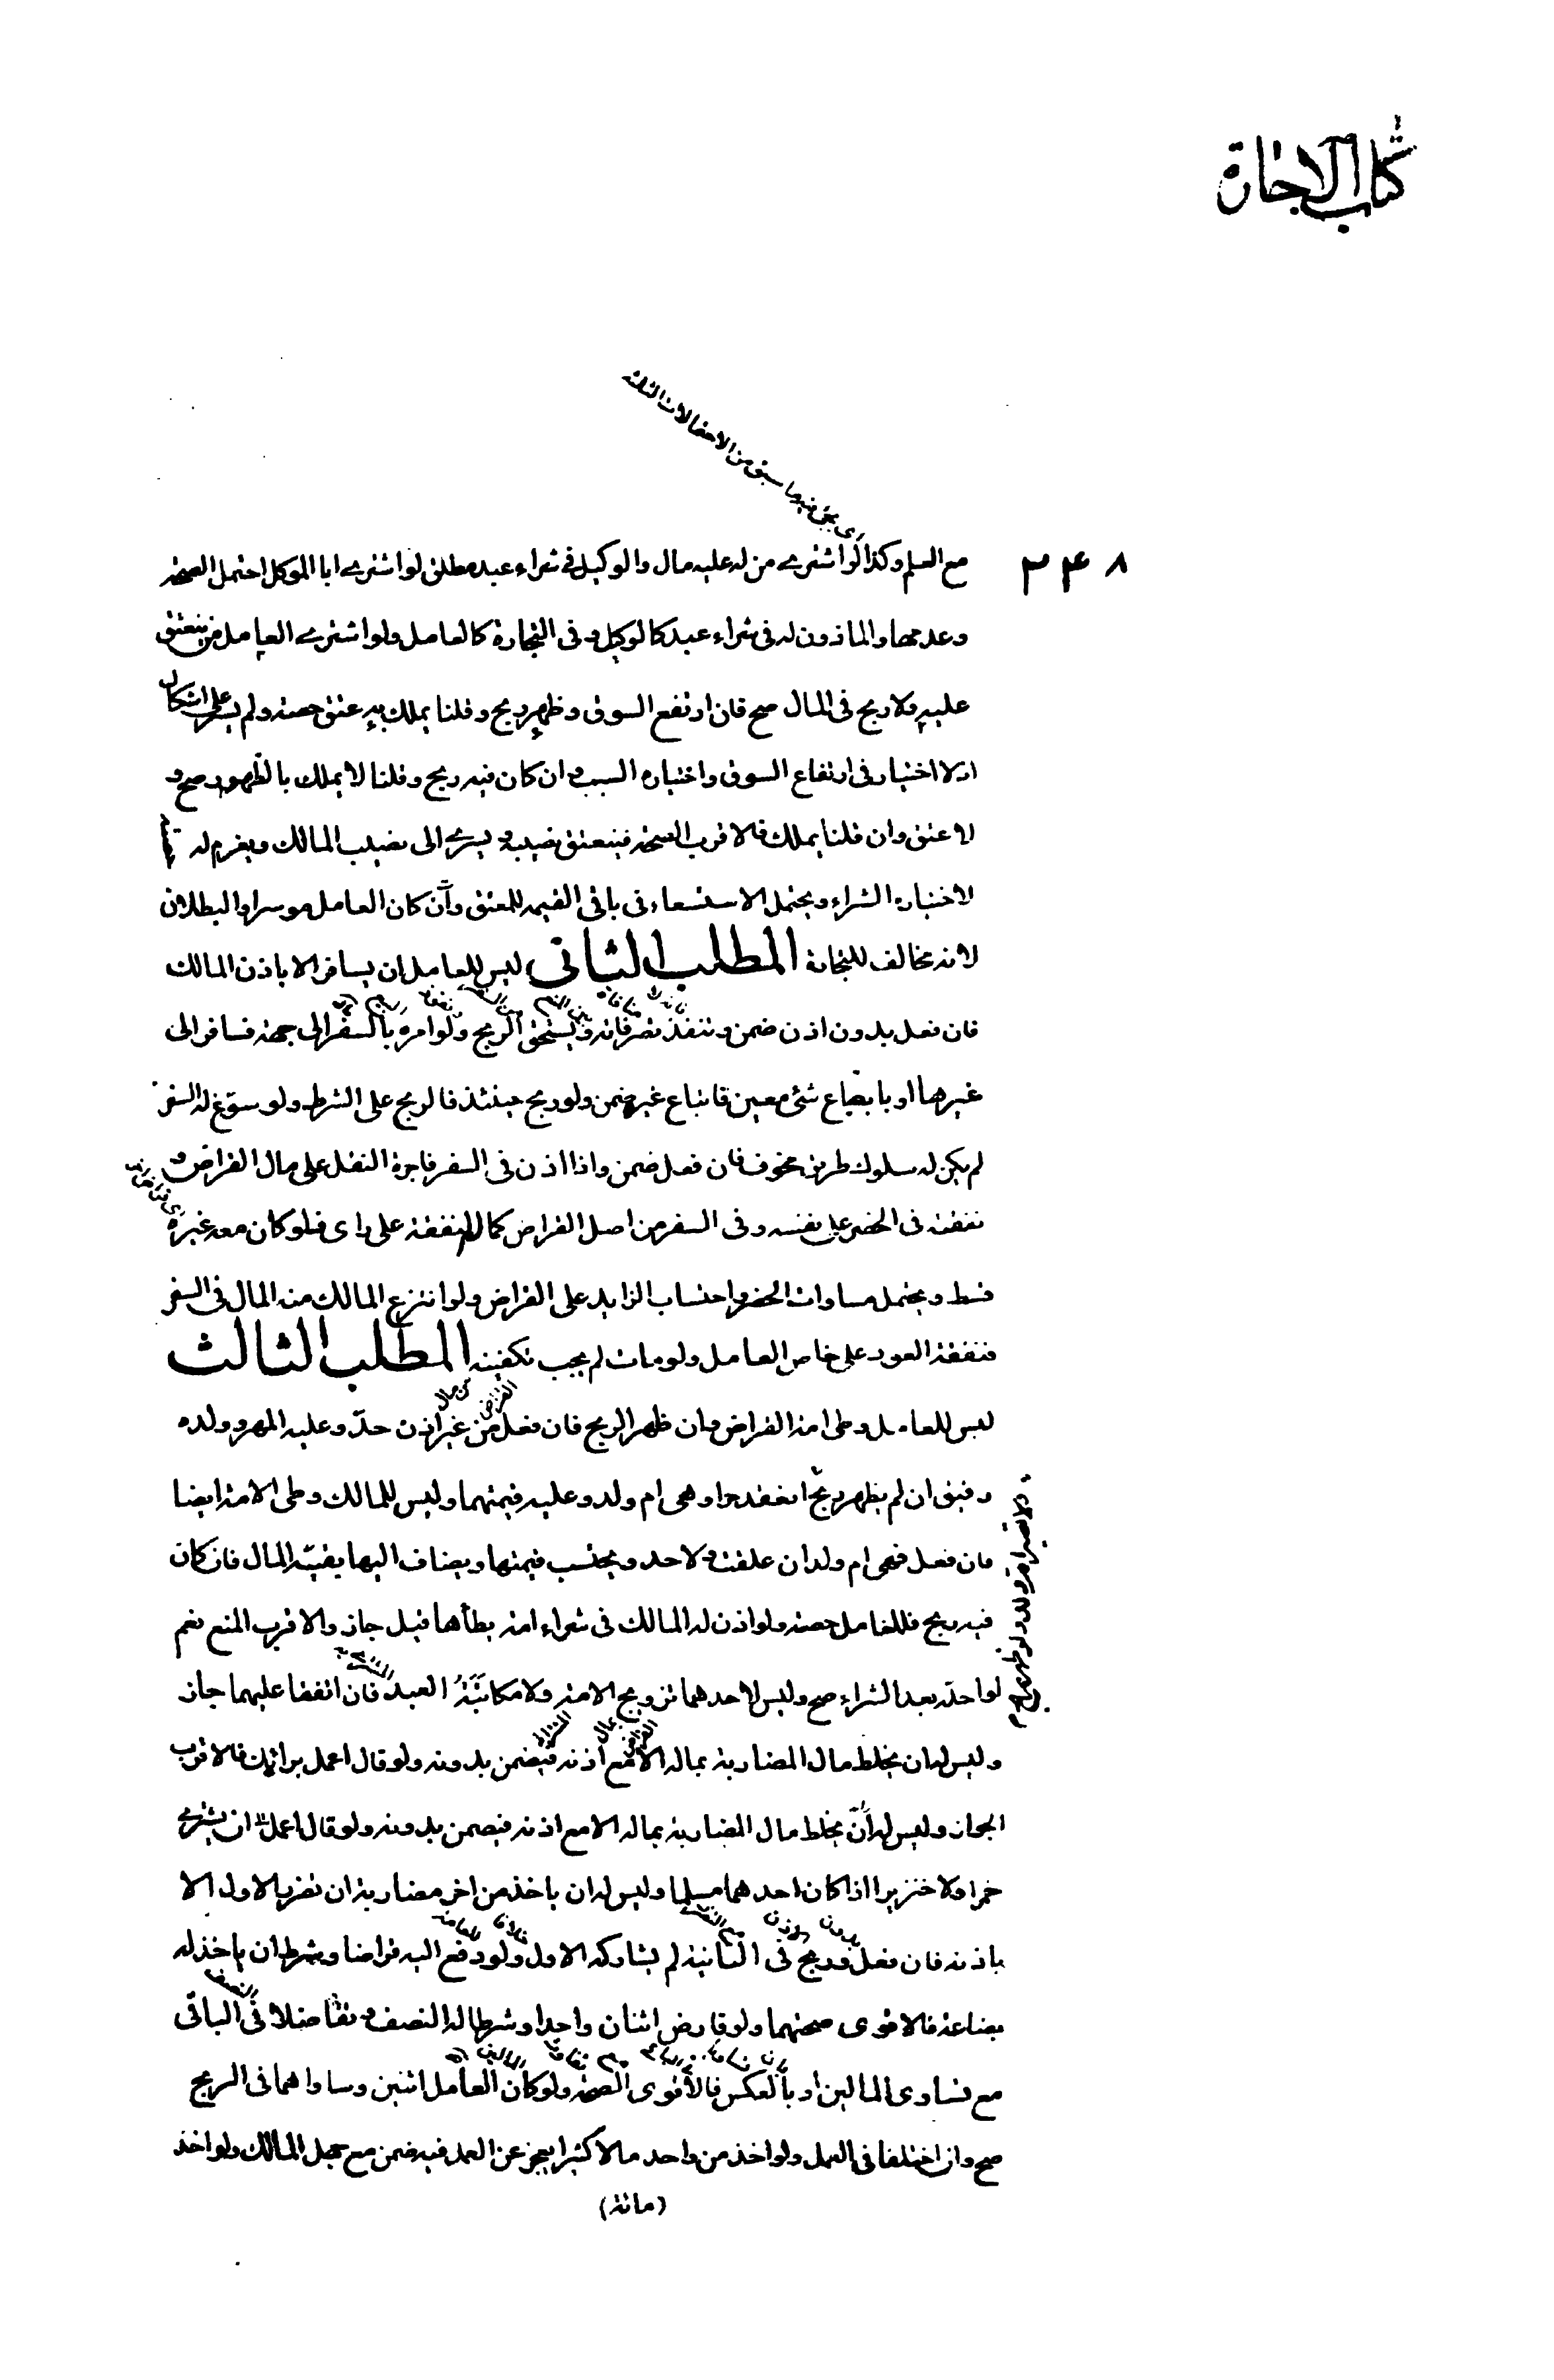 كتاب الاجارة
ى يجئ فيه ما سبق من الاحتمالات الثلثه
۲۴۸
مع العلم وكذا لو اشترى من له عليه مال والوكيل في شراء عبد مطلق لو اشترى ابا الموكل احتمل الصحة
وعدمها والماذون له فى شراء عبد كالوكيل و فى التجارة كالعامل ولو اشترى العامل من ينعتق
عليه ولا ربح فى المال صح فان ارتفع السوق وظهر ربح وقلنا يملك به عتق حصته ولم يسر على اشكال
اذ لا اختيار فى ارتفاع السوق واختياره السبب و ان كان فيه ربح وقلنا لا يملك بالظهور صح و
لا عتق وان قلنا يملك فالاقرب الصحة فينعتق نصيبه و يسرى الى نصيب المالك ويغرم له
لاختياره الشراء ويحتمل الاستسعاء فى باقى القيمه للمعتق وان كان العامل موسرا والبطلان
لانه مخالف للتجارة المطلب الثانى ليس للعامل ان يسافر الا باذن المالك
فان فعل بدون اذن ضمن وتنفذ تصرفاته ويستحق الربح ولو امره بالسفر الى جهة فسافر الى
غيرها او بابتياع شئ معين فابتاع غيره ضمن ولو ربح حينئذ فالربح على الشرط ولو سوّغ له السفر
لم يكن له سلوك طريق مخوف فان فعل ضمن واذا اذن فى السفر فاجرة النقل على مال القراض و
نفقته فى الحضر على نفسه وفى السفر من اصل القراض كمال النفقة على راى فلو كان معه غيره
قسط ويحتمل مساواة الحضر واحتساب الزايد على القراض ولو انتزع المالك منه المال فى السفر
فنفقة العود على خاص العامل ولو مات لم يجب تكفينه المطلب الثالث
ليس للعامل وطى امة القراض وان ظهر الربح فان فعل من غير اذن حدّ وعليه المهر وولده
رقيق ان لم يظهر ربح والا انعقد حرا وهى ام ولد وعليه قيمتهما وليس للمالك وطى الامة ايضا
فان فعل فهى ام ولد ان علقت ولا حد ويحتسب قيمتها ويضاف اليها بقيّة المال فان كان
فيه ربح فللعامل حصته ولو اذن له المالك فى شراء امة يطأها قيل جاز والاقرب المنع نعم
لو احله بعد الشراء صح وليس لاحدهما تزويج الامة ولا مكاتبة العبد فان اتفقا عليهما جاز
وليس له ان يخلط مال المضاربة بماله الا مع اذنه فيضمن بدونه ولو قال اعمل برائك فالاقرب
الجواز وليس له ان يخلط مال المضاربة بماله الا مع اذنه فيضمن بدونه ولو قال اعمل ان يشترى
خمرا ولا خنزيرا اذا كان احدهما مسلما وليس له ان ياخذ من اخر مضاربة ان تضرر الاول الا
باذنه فان فعل وربح فى الثانية لم يشاركه الاول ولو دفع اليه قراضا وشرط ان ياخذ له
بضاعة فالاقوى صحتهما ولو قارض اثنان واحدا وشرطا له النصف و تفاضلا فى الباقى
مع تساوى المالين او بالعكس فالاقوى الصحة ولو كان العامل اثنين وساواهما فى الربح
صح وان اختلفا فى العمل ولو اخذ من واحد مالا كثيرا يعجز عن العمل فيه ضمن مع جهل المالك ولو اخذ
(مائة)